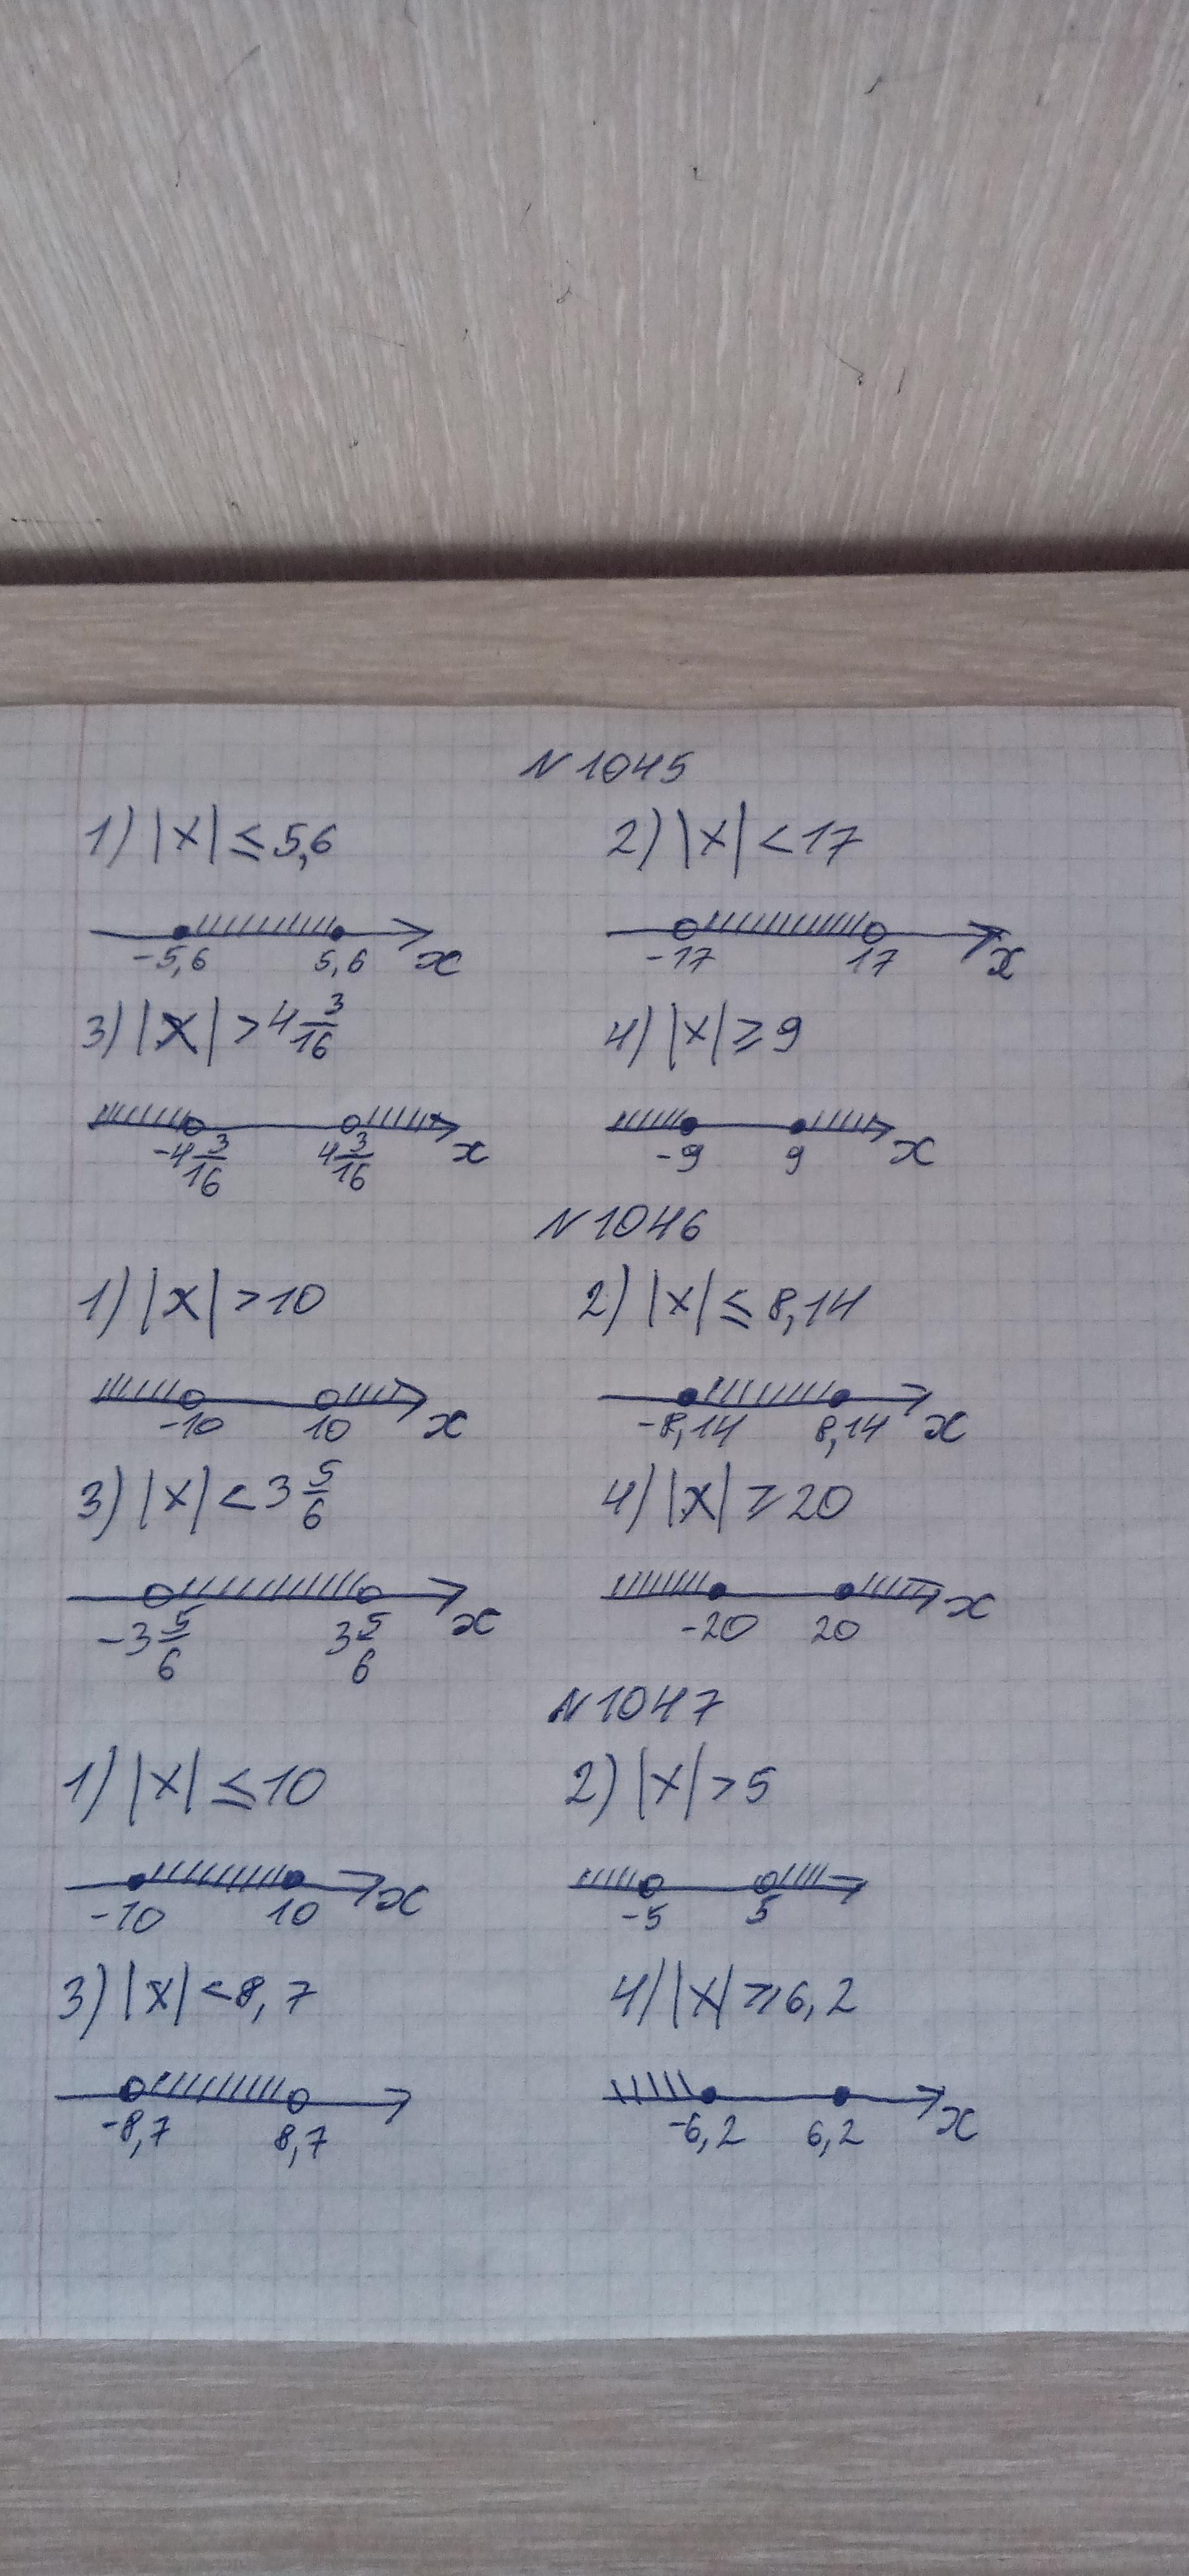 N 1045
1) |x| ≤ 5,6 2) |x| < 17
-5,6 5,6 x -17 17 x
3) |x| > 4 3/16 4) |x| ≥ 9
-4 3/16 4 3/16 x -9 9 x
N 1046
1) |x| > 10 2) |x| ≤ 8,14
-10 10 x -8,14 8,14 x
3) |x| < 3 5/6 4) |x| ≥ 20
-3 5/6 3 5/6 x -20 20 x
N 1047
1) |x| ≤ 10 2) |x| > 5
-10 10 x -5 5
3) |x| < 8,7 4) |x| ≥ 6,2
-8,7 8,7 -6,2 6,2 x